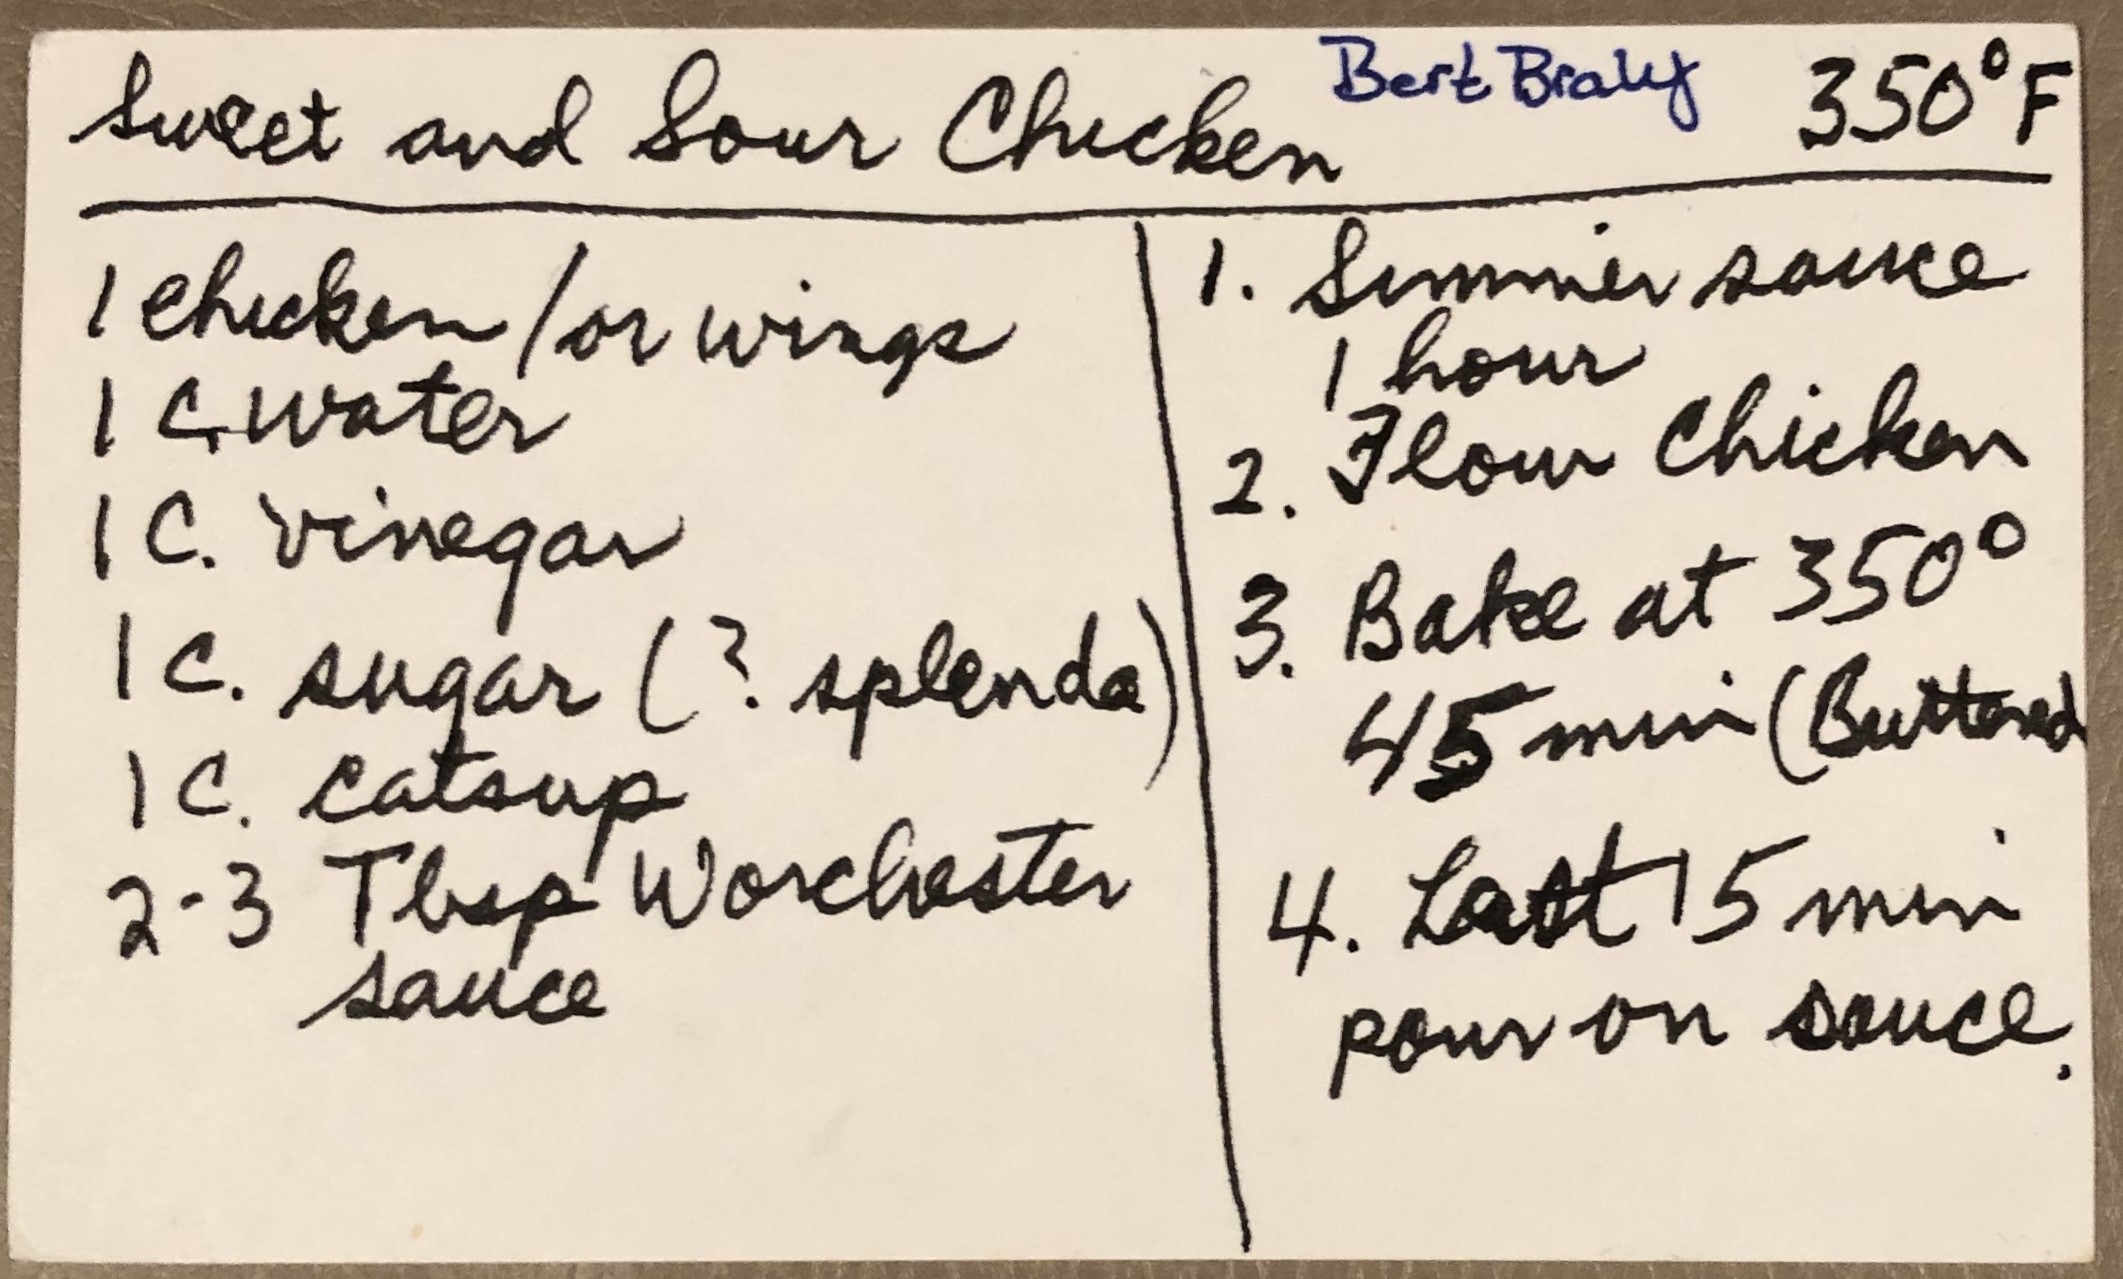 Sweet and Sour Chicken Bert Braly 350°F
1 chicken / or wings
1 C. water
1 C. vinegar
1 C. sugar (? splenda)
1 C. catsup
2-3 Tbsp Worchester
sauce
1. Simmer sauce
1 hour
2. Flour Chicken
3. Bake at 350°
45 min (Buttered
4. Last 15 min
pour on sauce.